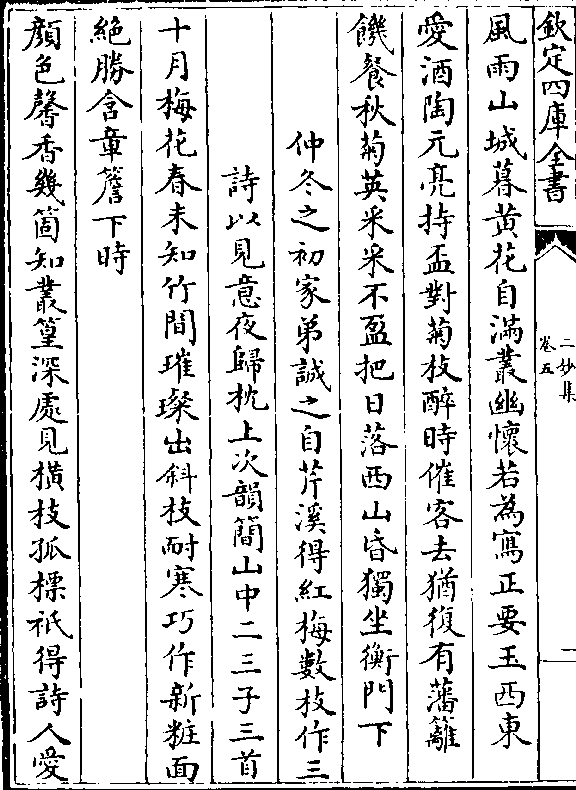 欽定四庫全書
二妙集
卷五
二
風雨山城暮黃花自滿叢幽懷若為寫正要王西東
愛酒陶元亮持盃對菊枝醉時催客去猶復有藩籬
饑餐秋菊英采采不盈把日落西山昏獨坐衡門下
仲冬之初家弟誠之自芹溪得紅梅數枝作三
詩以見意夜歸枕上次韻簡山中二三子三首
十月梅花春未知竹間璀璨出斜枝耐寒巧作新粧面
絕勝含章簷下時
顏色馨香幾箇知叢篁深處見橫枝孤標祇得詩人愛